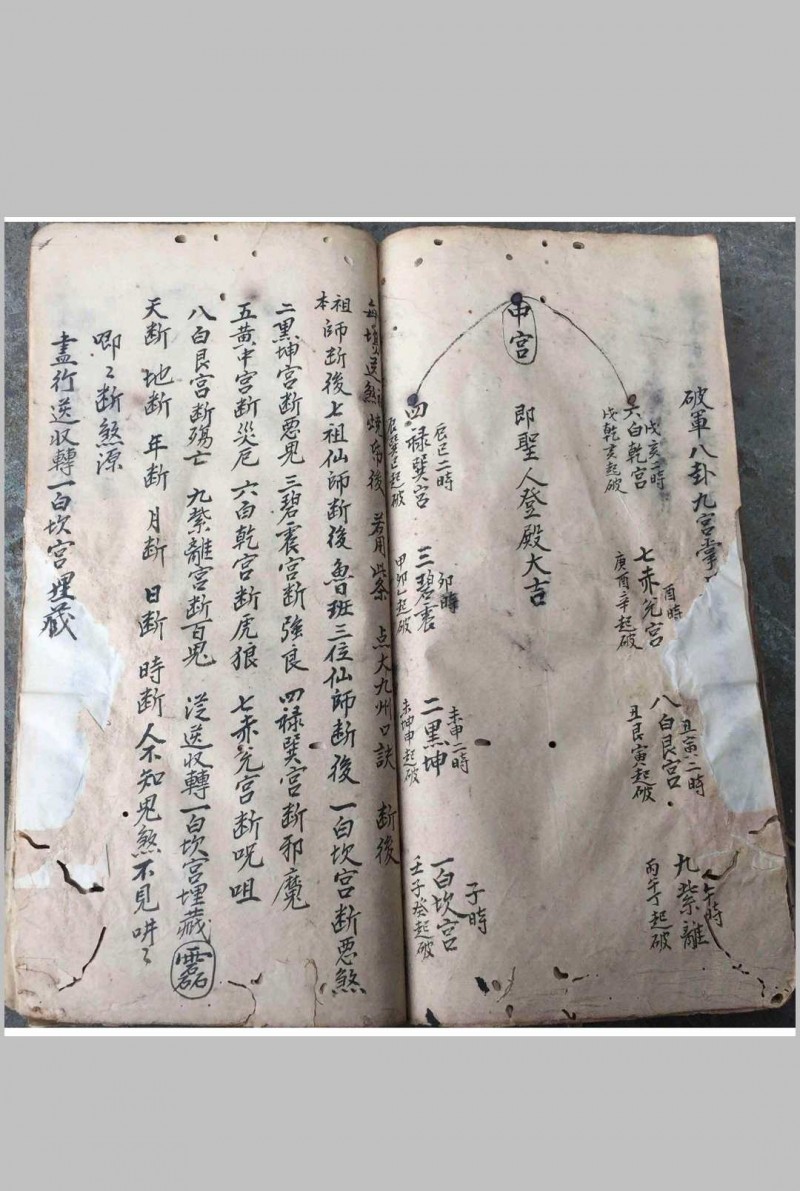 破軍八卦九宮掌
戊亥二時
六白乾宮
戊乾亥起破
酉時
七赤兌宮
庚酉辛起破
丑寅二時
八白艮宮
丑艮寅起破
午時
九紫離
丙午丁起破
中宮
即聖人登殿大吉
辰巳二時
四禄巽宮
辰巽巳起破
卯時
三碧震
甲卯乙起破
未申二時
二黑坤
未坤申起破
子時
一白坎宮
壬子癸起破
每 送煞 後 若用此条 点大九州口訣 断後
本祖師断後 七祖仙師断後 魯班三位仙師断後 一白坎宮断恶煞
二黑坤宮断恶鬼 三碧震宮断強良 四禄巽宮断邪魔
五黄中宮断災厄 六白乾宮断虎狼 七赤兌宮断呪咀
八白艮宮断殤亡 九紫離宮断百鬼 送收轉一白坎宮埋藏
天断 地断 年断 月断 日断 時断 人不知鬼煞不見
唧〻断煞源
盡行送收轉一白坎宮埋藏